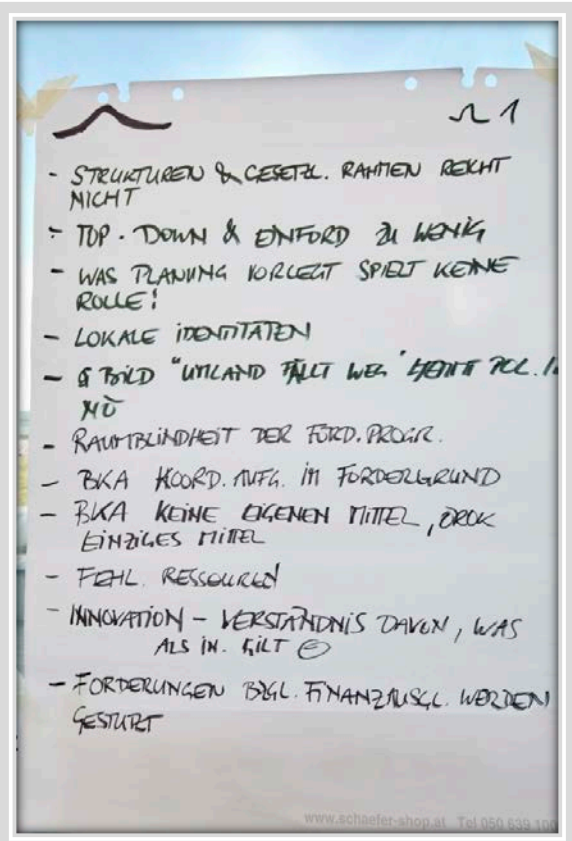 1
- STRUKTUREN & GESETZL. RAHMEN REICHT
NICHT
- TOP-DOWN & EINFORD ZU WENIG
- WAS PLANUNG VORLEGT SPIELT KEINE
ROLLE!
- LOKALE IDENTITÄTEN
- BILD "UMLAND FÄLLT WEG" POL. IN
NÖ
- RAUMBLINDHEIT DER FÖRD. PROGR.
- BKA KOORD. AUFG. IM FORDERGRUND
- BKA KEINE EIGENEN MITTEL, ÖROK
EINZIGES MITTEL
- FEHL. RESSOURCEN
- INNOVATION - VERSTÄNDNIS DAVON, WAS
ALS IN. GILT
- FORDERUNGEN BZGL. FINANZAUSGL. WERDEN
www.schaefer-shop.at Tel 050 639 100